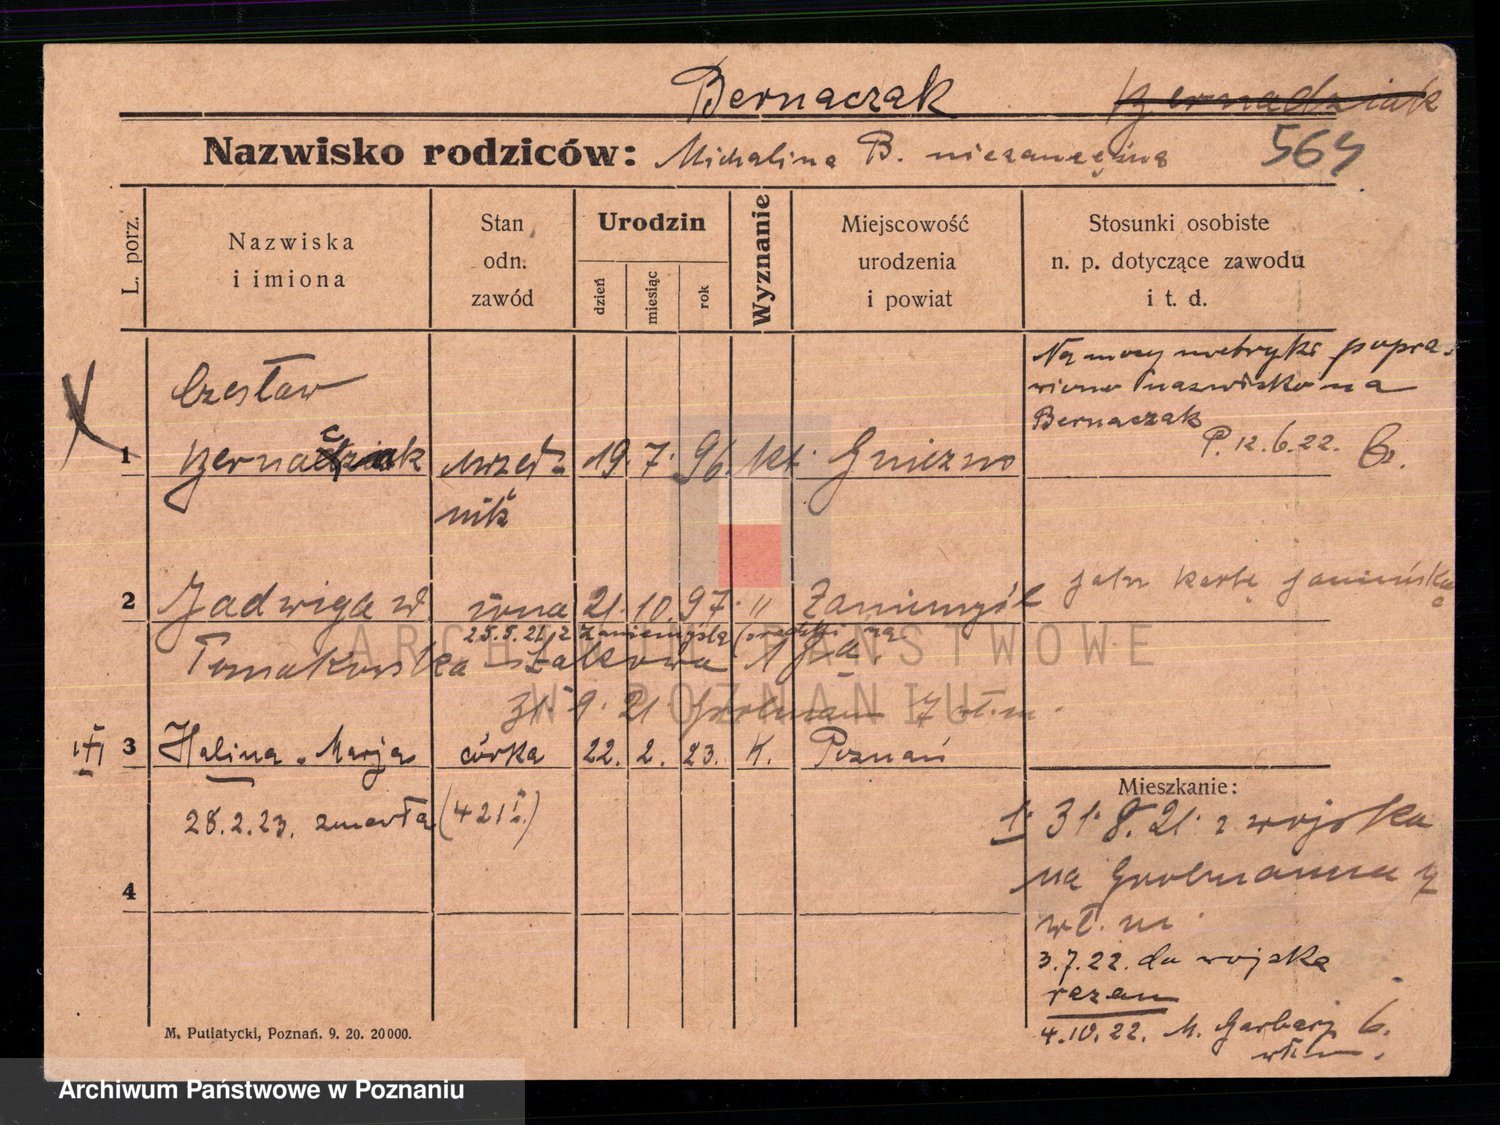 Bernaczak Bernadziak
Nazwisko rodziców: Michalina B. niezamężna 564
L. porz.
Nazwiska
i imiona
Stan
odn.
zawód
Urodzin
dzień
miesiąc
rok
Wyznanie
Miejscowość
urodzenia
i powiat
Stosunki osobiste
n. p. dotyczące zawodu
i t. d.
Na mocy metryki popra-
wiono nazwisko na
Bernaczak
P. 12.6.22.
Czesław
1 Bernaczak urzęd- 19. 7. 96. kt. Gniezno
nik
2 Jadwiga żona 21. 10. 97. " Zaniemyśl
25.5.21. z Zaniemyśla
Tomakowska
31. 9. 21. Grolmana 7 wł. m.
3 Halina Marja córka 22. 2. 23. K. Poznań
28.2.23. zmarła (421 I.)
4
Mieszkanie:
1. 31. 8. 21. z wojska
na Grolmanna 7
wł. m.
3.7.22. do wojska
razem
4.10.22. M. Garbary 6.
wł. m.
M. Putiatycki, Poznań. 9. 20. 20 000.
ARCHIWUM PAŃSTWOWE
W POZNANIU
Archiwum Państwowe w Poznaniu